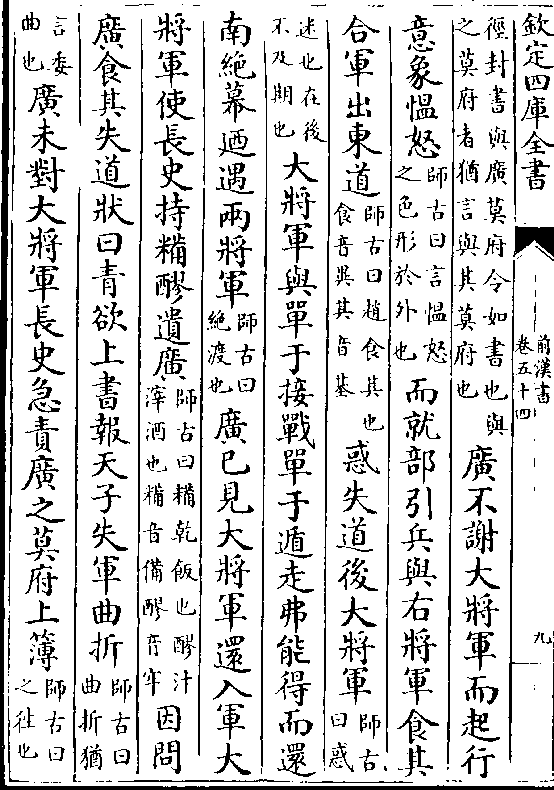 欽定四庫全書
前漢書
卷五十四
九
徑封書與廣莫府令如書也與
之莫府者猶言與其莫府也
廣不謝大將軍而起行
意象慍怒
師古曰言慍怒
之色形於外也
而就部引兵與右將軍食其
合軍出東道
師古曰趙食其也
食音異其音基
惑失道後大將軍
師古
曰惑
迷也在後
不及期也
大將軍與單于接戰單于遁走弗能得而還
南絶幕廼遇兩將軍
師古曰
絶渡也
廣已見大將軍還入軍大
將軍使長史持糒醪遺廣
師古曰糒乾飯也醪汁
滓酒也糒音備醪音牢
因問
廣食其失道狀曰青欲上書報天子失軍曲折
師古曰
曲折猶
言委
曲也
廣未對大將軍長史急責廣之莫府上簿
師古曰
之往也